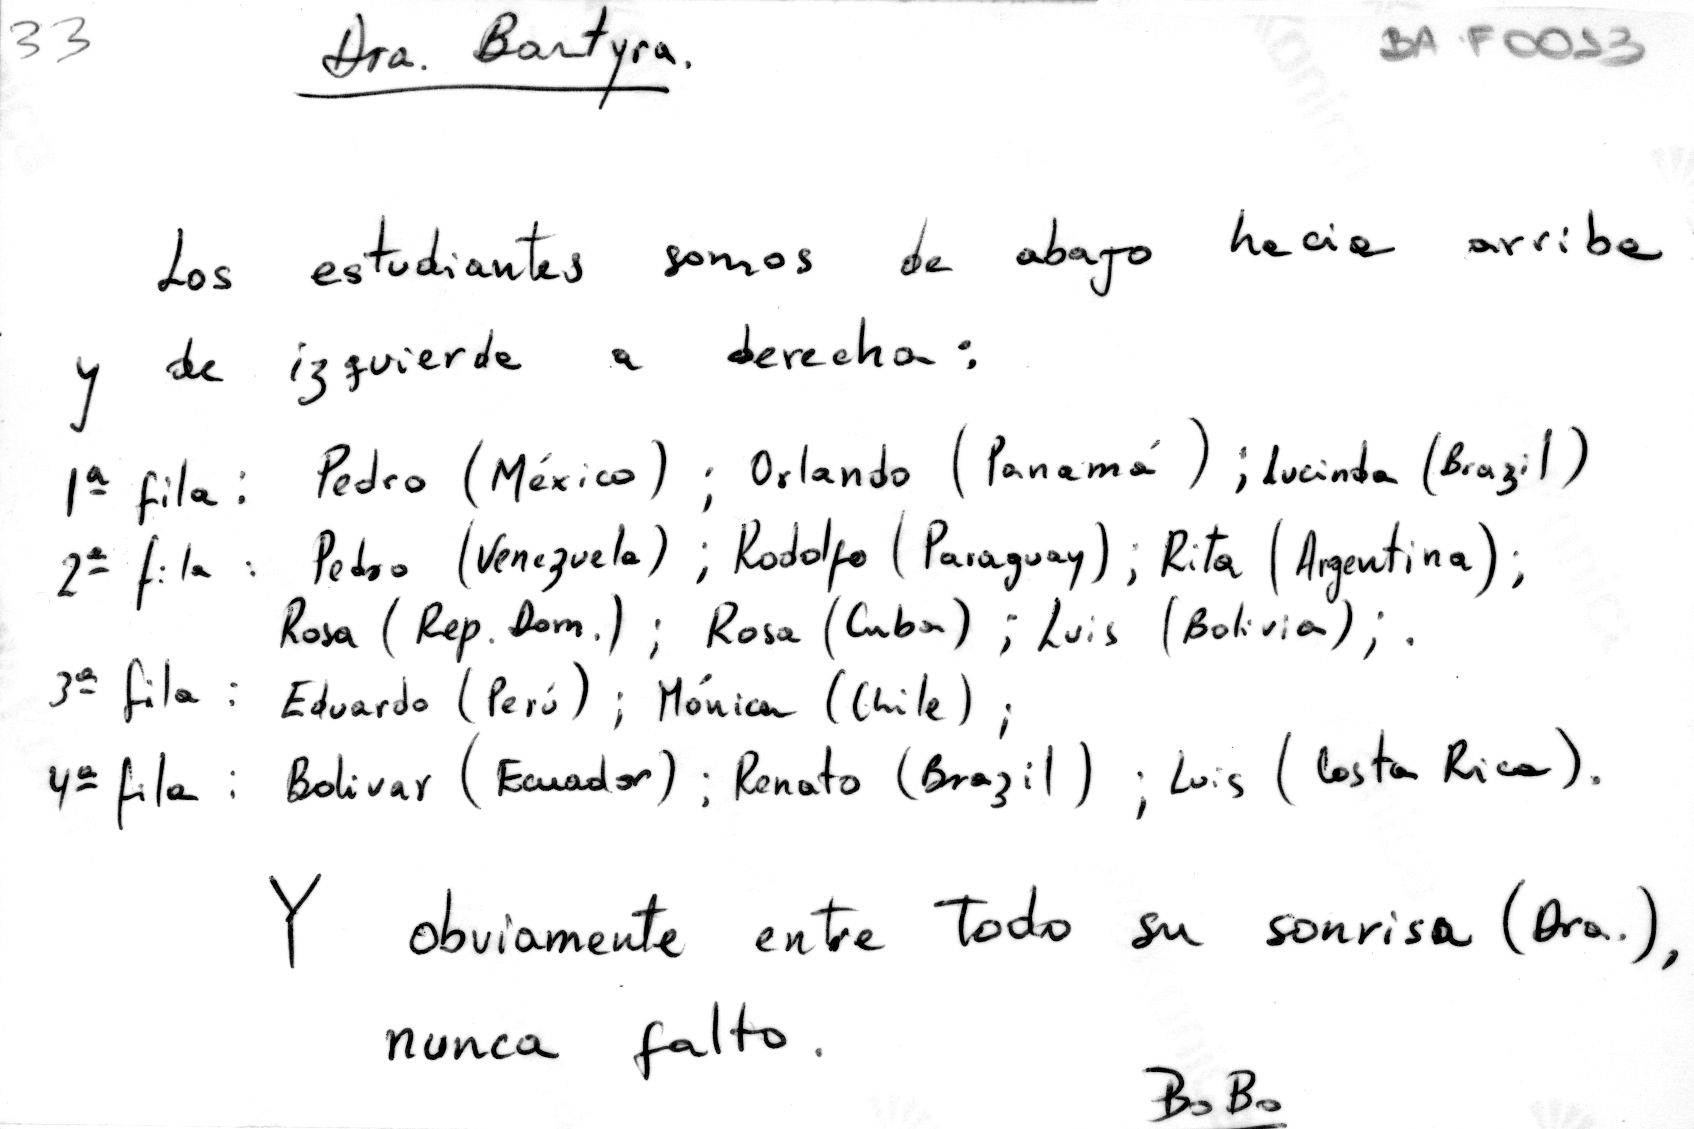 33
Dra. Bartyra.
BA F0013
Los estudiantes somos de abajo hacia arriba
y de izquierda a derecha:
1ª fila: Pedro (México) ; Orlando (Panamá) ; Lucinda (Brazil)
2ª fila : Pedro (Venezuela) ; Rodolfo (Paraguay) ; Rita (Argentina) ;
Rosa (Rep. Dom.) ; Rosa (Cuba) ; Luis (Bolivia) ; .
3ª fila : Eduardo (Perú) ; Mónica (Chile) ;
4ª fila : Bolivar (Ecuador) ; Renato (Brazil) ; Luis (Costa Rica).
Y obviamente entre todo su sonrisa (Dra.),
nunca falto.
BoBo